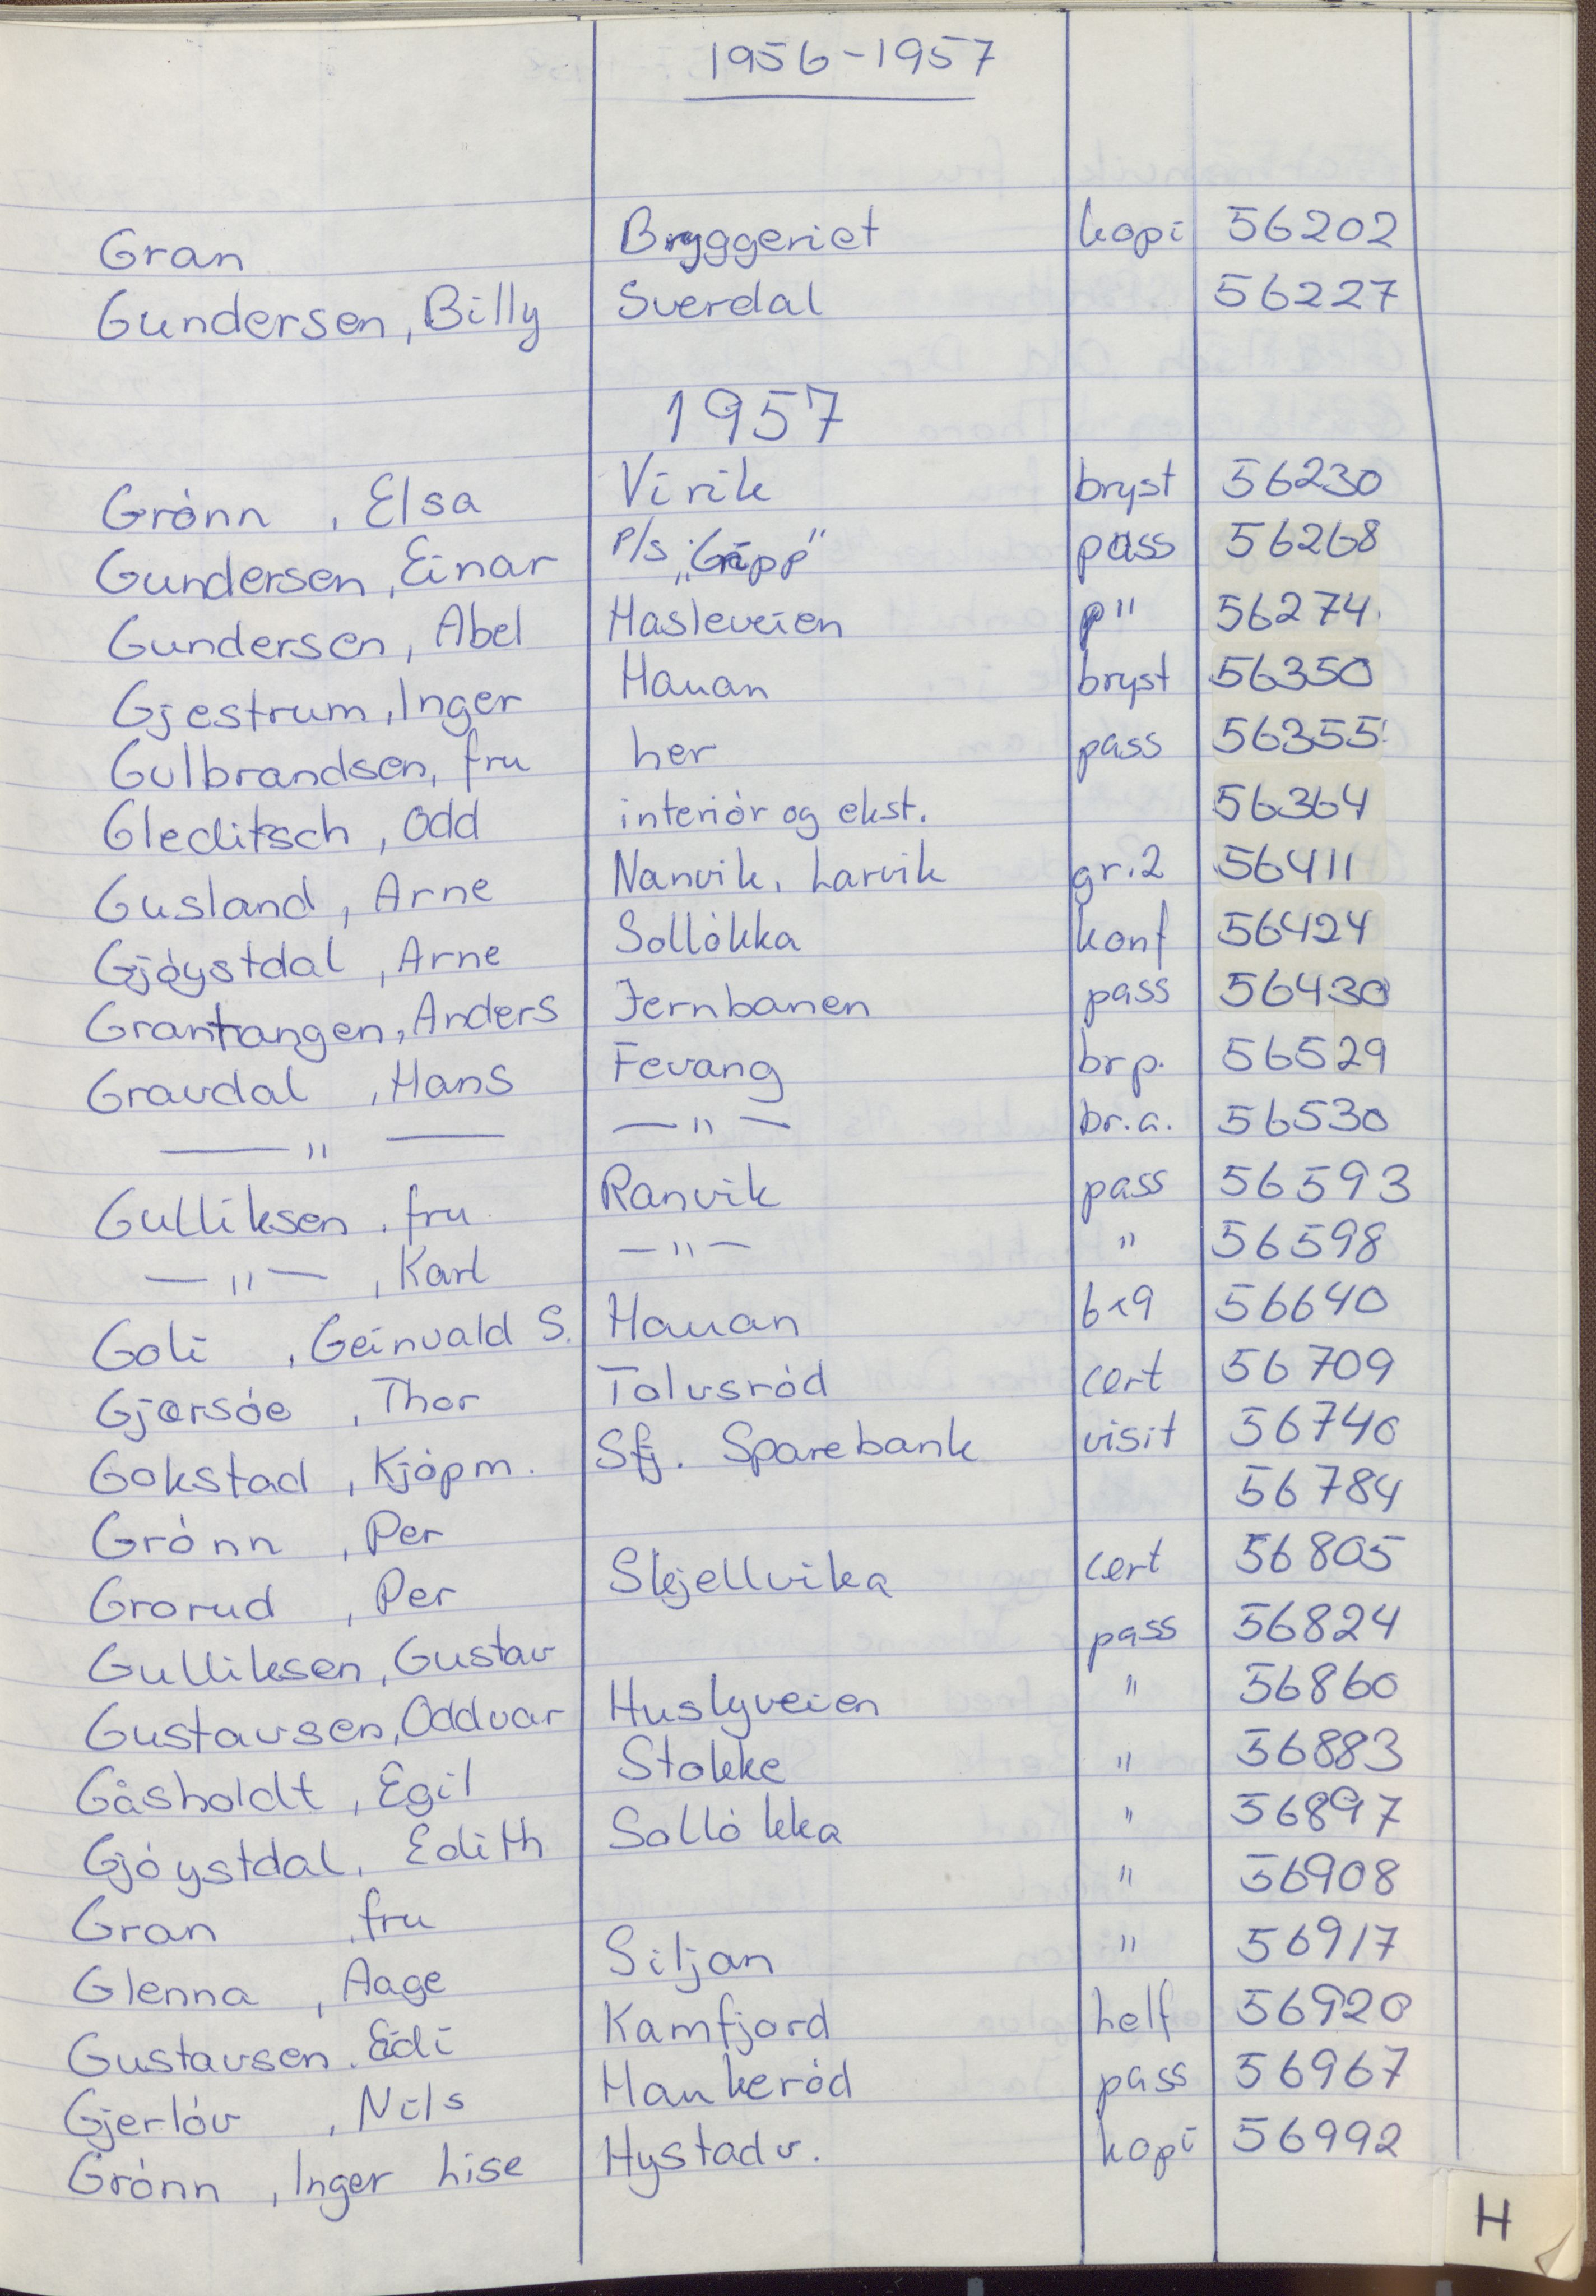 1956-1957
Gran Bryggeriet kopi 56202
Gundersen, Billy Sverdal 56227
1957
Grònn, Elsa Virik bryst 56230
Gundersen, Einar P/s „Gripp" pass 56268
Gundersen, Abel Hasleveien p" 56274
Gjestrum, Inger Hauan bryst 56350
Gulbrandsen, fru her pass 56355
Gleditsch, Odd interiòr og ekst. 56364
Gusland, Arne Nanvik, Larvik gr.2 56411
Gjòystdal, Arne Sollòkka konf 56424
Granhangen, Anders Jernbanen pass 56430
Gravdal, Hans Fevang br p. 56529
— " — — " — br.a. 56530
Gulliksen, fru Ranvik pass 56593
— " —, Karl — " — " 56598
Goli, Geirvald S. Hauan 6x9 56640
Gjersòe, Thor Tolvsròd cert 56709
Gokstad, Kjòpm. Sfj. Sparebank visit 56740
Grònn, Per 56784
Grorud, Per Skjellvika cert 56805
Gulliksen, Gustav pass 56824
Gustavsen, Oddvar Huslyveien " 56860
Gåsholdt, Egil Stokke " 56883
Gjòystdal, Edith Sollòkka " 56897
Gran, fru " 56908
Glenna, Aage Siljan " 56917
Gustavsen, Edi Kamfjord helf 56920
Gjerlòv, Nils Haukeròd pass 56967
Grònn, Inger Lise Hystadv. kopi 56992
H